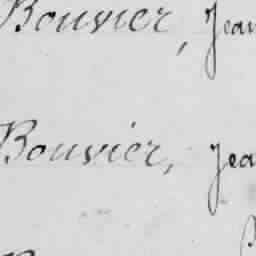 Bouvier, Jean
Bouvier, Jea